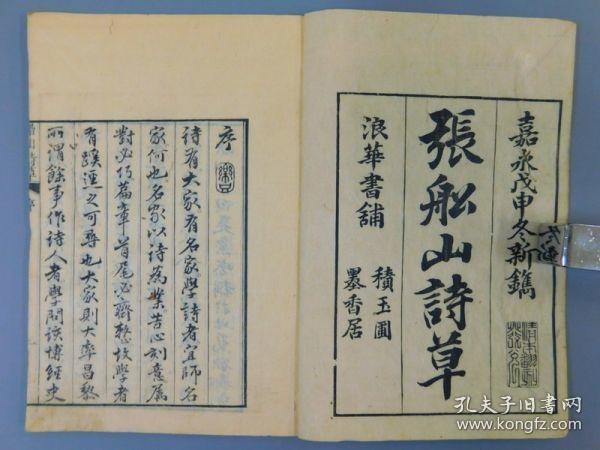 嘉永戊申冬新鐫
張船山詩草
浪華書舖
積玉圃
墨香居
序
詩有大家有名家學詩者宜師名
家何也名家以詩為業苦心刻意屬
對必巧篇章首尾必齊整故學者
有蹊逕之可尋也大家則大率昌黎
所謂餘事作詩人者學問該博經史
孔夫子旧书网
www.kongfz.com